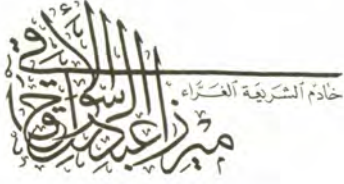 خَادِم ٱلشَّرِيعَة ٱلغَرَّاء
ميرزا عبد الرسول الاحقاقي